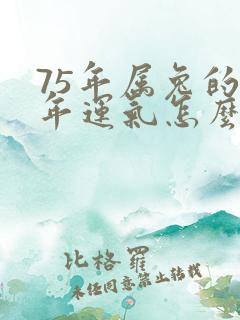 75年属兔的
年运气怎么
比格罗
未经同意禁止转载